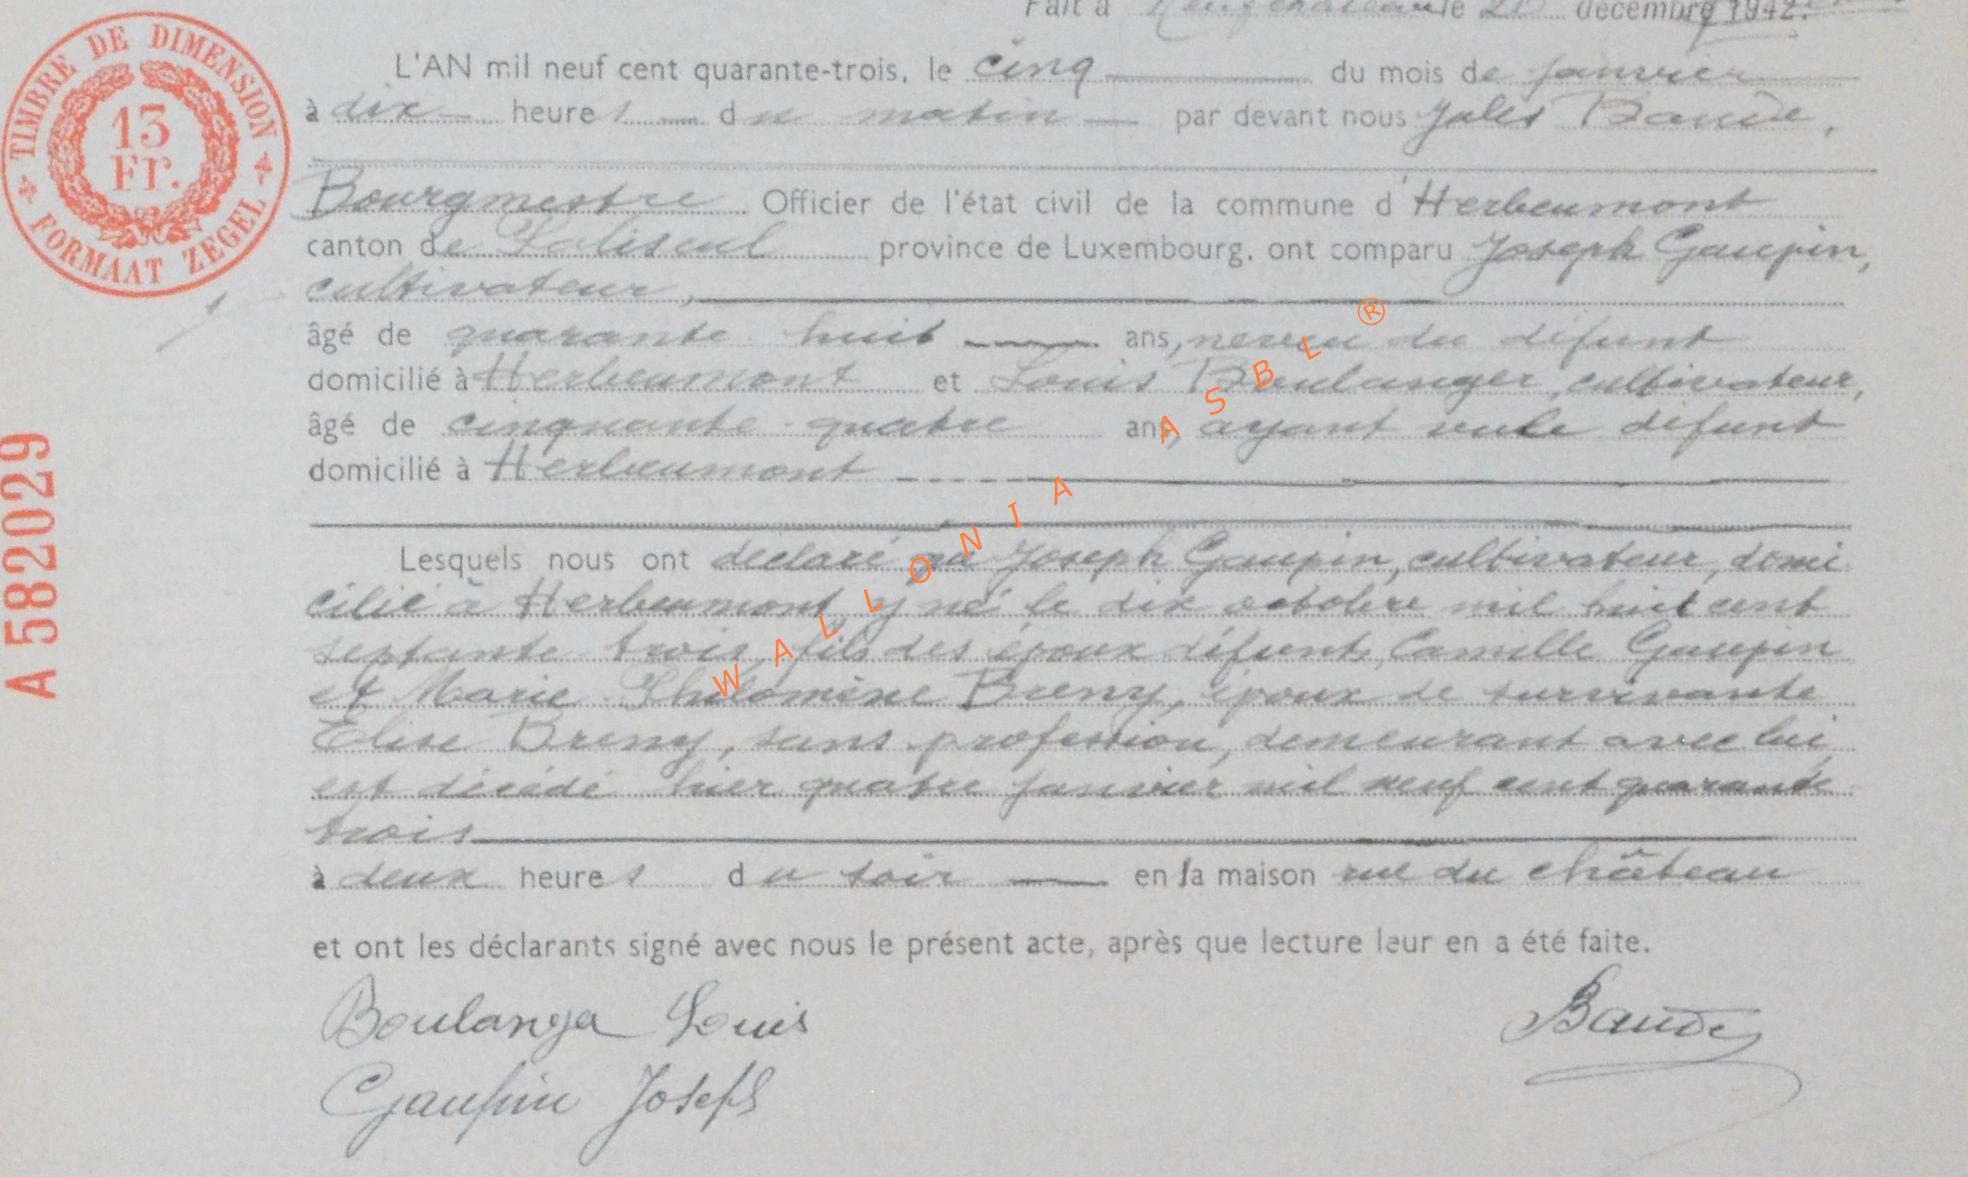 Fait à Neufchâteau le décembre 1942.
TIMBRE DE DIMENSION
13
Fr.
FORMAAT ZEGEL
A 582029
L'AN mil neuf cent quarante-trois, le cinq du mois de janvier
à dix heures du matin par devant nous Jules Baude,
Bourgmestre Officier de l'état civil de la commune d'Herbeumont
canton de Paliseul province de Luxembourg, ont comparu Joseph Gaupin,
cultivateur,
âgé de quarante huit ans, neveu du défunt
domicilié à Herbeumont et Louis Boulanger, cultivateur,
âgé de cinquante-quatre ans, ayant vu le défunt
domicilié à Herbeumont
Lesquels nous ont déclaré que Joseph Gaupin, cultivateur, domi
cilié à Herbeumont, y né le dix octobre mil huit cent
septante trois, fils des époux défunts, Camille Gaupin
et Marie-Philomène Breny, époux de survivante
Elise Breny, sans profession, demeurant avec lui
est décédé hier quatre janvier mil neuf cent quarante-
trois
à deux heures du soir en la maison rue du château
et ont les déclarants signé avec nous le présent acte, après que lecture leur en a été faite.
Boulanger Louis
Baude
Gaupin Joseph
WALLONIA ASBL ®